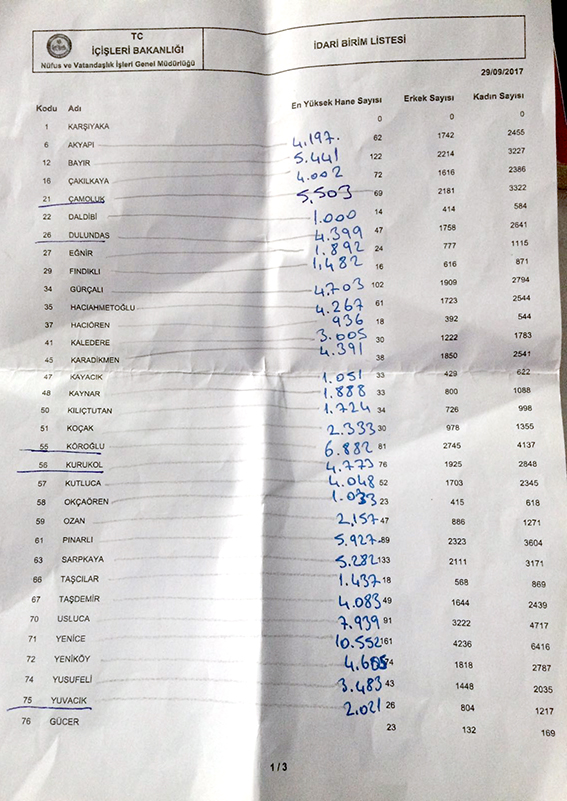 TC
İÇİŞLERİ BAKANLIĞI
Nüfus ve Vatandaşlık İşleri Genel Müdürlüğü
İDARİ BİRİM LİSTESİ
29/09/2017
Kodu Adı En Yüksek Hane Sayısı Erkek Sayısı Kadın Sayısı
1 KARŞIYAKA 0 0 0
6 AKYAPI 4.197. 62 1742 2455
12 BAYIR 5.441 122 2214 3227
16 ÇAKILKAYA 4.002 72 1616 2386
21 ÇAMOLUK 5.503 69 2181 3322
22 DALDİBİ 1.000 14 414 584
26 DULUNDAS 4.399 47 1758 2641
27 EĞNİR 1.892 24 777 1115
29 FINDIKLI 1.482 16 616 871
34 GÜRÇALI 4.703 102 1909 2794
35 HACIAHMETOĞLU 4.267 61 1723 2544
37 HACIÖREN 936 18 392 544
41 KALEDERE 3.005 30 1222 1783
45 KARADİKMEN 4.391 38 1850 2541
47 KAYACIK 1.051 33 429 622
48 KAYNAR 1.888 33 800 1088
50 KILIÇTUTAN 1.724 34 726 998
51 KOÇAK 2.333 30 978 1355
55 KÖROĞLU 6.882 81 2745 4137
56 KURUKOL 4.773 76 1925 2848
57 KUTLUCA 4.048 52 1703 2345
58 OKÇAÖREN 1.033 23 415 618
59 OZAN 2.157 47 886 1271
61 PINARLI 5.927 89 2323 3604
63 SARPKAYA 5.282 133 2111 3171
66 TAŞCILAR 1.437 18 568 869
67 TAŞDEMİR 4.083 49 1644 2439
70 USLUCA 7.939 91 3222 4717
71 YENİCE 10.552 161 4236 6416
72 YENİKÖY 4.605 74 1818 2787
74 YUSUFELİ 3.483 43 1448 2035
75 YUVACIK 2.021 26 804 1217
76 GÜCER 23 132 169
1 / 3